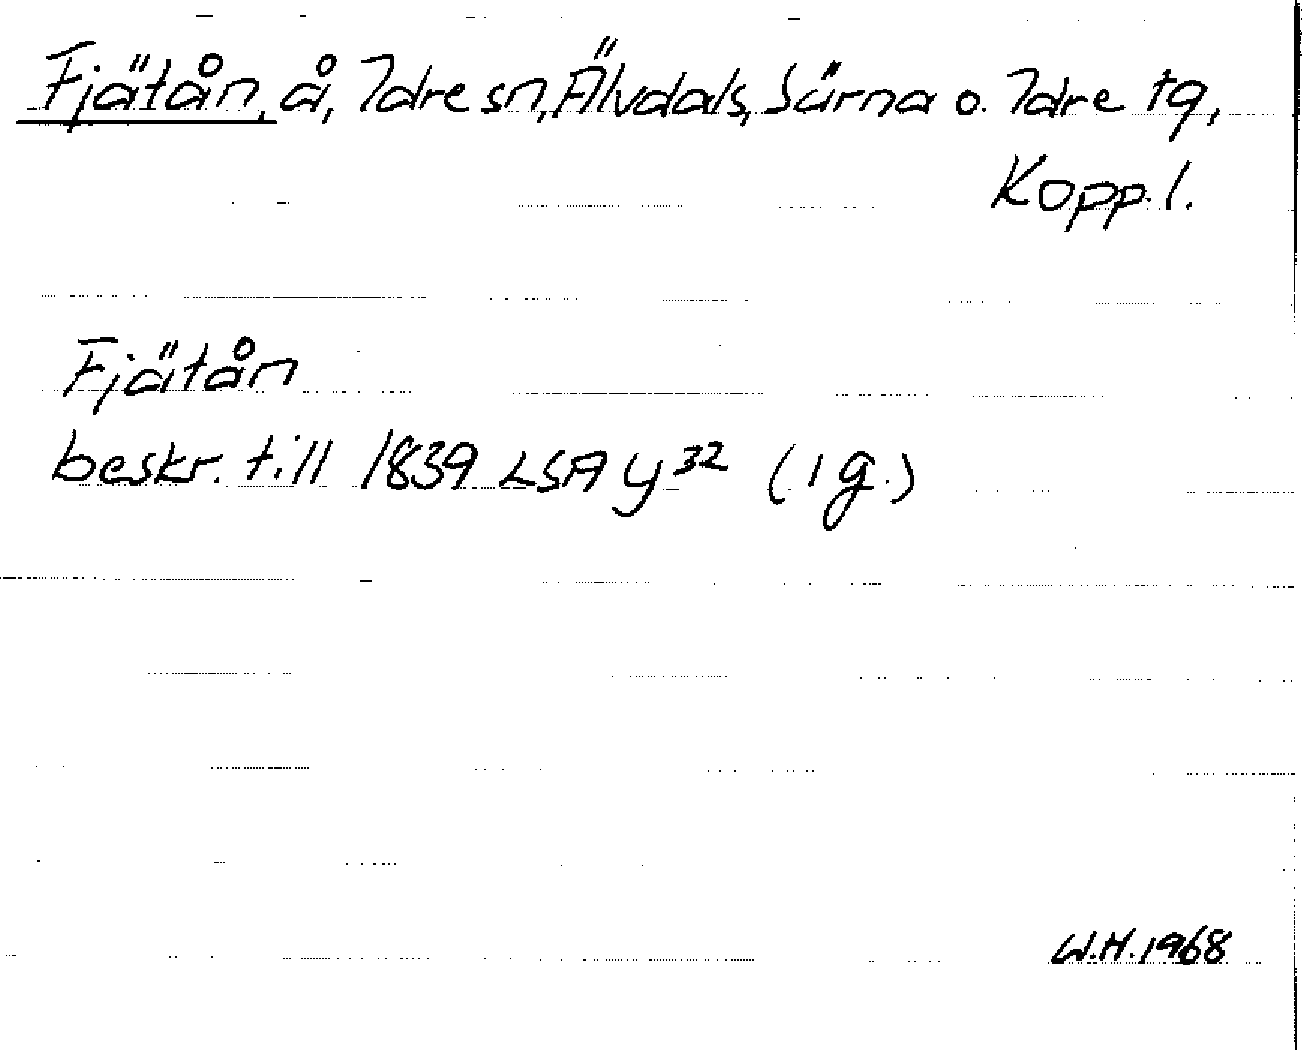 Fjätån, å, Idre sn, Älvdals, Särna o. Idre tg,
Kopp. l.
Fjätån
beskr. till 1839 LSA y 32 (1 g.)
W.H. 1968